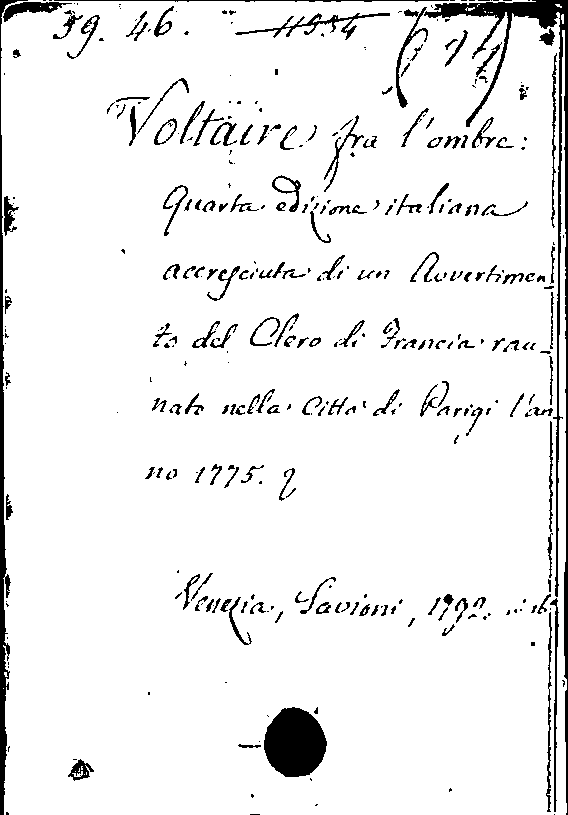 59. 46. 11534
Voltaire fra l'ombre:
Quarta edizione italiana
accresciuta di un Avvertimen
to del Clero di Francia rau_
nato nella Città di Parigi l'an
no 1775.
Venezia, Savioni, 1792. in 16°